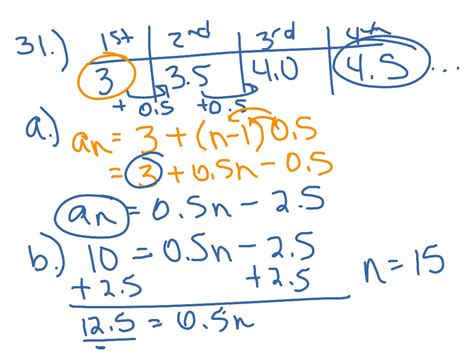 31.) 1st 2nd 3rd 4th
3 3.5 4.0 4.5 ...
+ 0.5 +0.5
a.) an = 3 + (n-1) 0.5
= 3 + 0.5n - 0.5
an = 0.5n - 2.5
b.) 10 = 0.5n - 2.5
+ 2.5 + 2.5 n = 15
12.5 = 0.5n